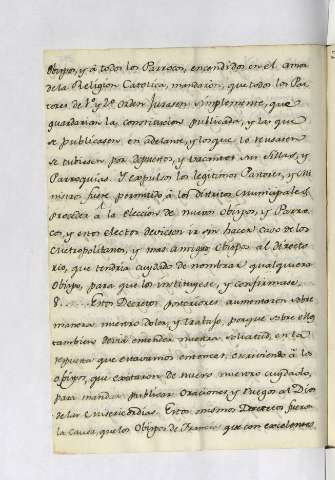 Obispos, y á todos los Parrocos, encendidos en el amor
de la Religion Catolica, mandaron, que todos los Pas-
tores de 1º y 2º orden jurasen simplemente, que
guardarian la constitucion publicada, y la que
se publicasen en adelante, y los que lo reusasen
se tubiesen por depuestos, y vacantes sus Sillas, y
Parroquias. Y expulsos los legitimos Pastores, y Mi-
nistros fuese permitido á los distritos municipales
proceder á la eleccion de nuevos Obispos, y Parro-
cos, y estos electos deviesen ir sin hacer caso de los
Metropolitanos, y mas antiguos Obispos al directo-
rio, que tendria cuydado de nombrar qualquiera
Obispo, para que los instituyese, y confirmase.
8. Estos Decretos posteriores aumentaron sobre
manera nuestro dolor, y trabajo, porque sobre ello
tambien devia entender nuestra solicitud, en la
respuesta que estavamos entonces escriviendo á los
Obispos, que excitaron de nuevo nuestro cuydado,
para mandar publicar Oraciones y Ruegos al Dios
de las Misericordias. Estos mismos Decretos fueron
la causa, que los Obispos de Francia que con excelentes